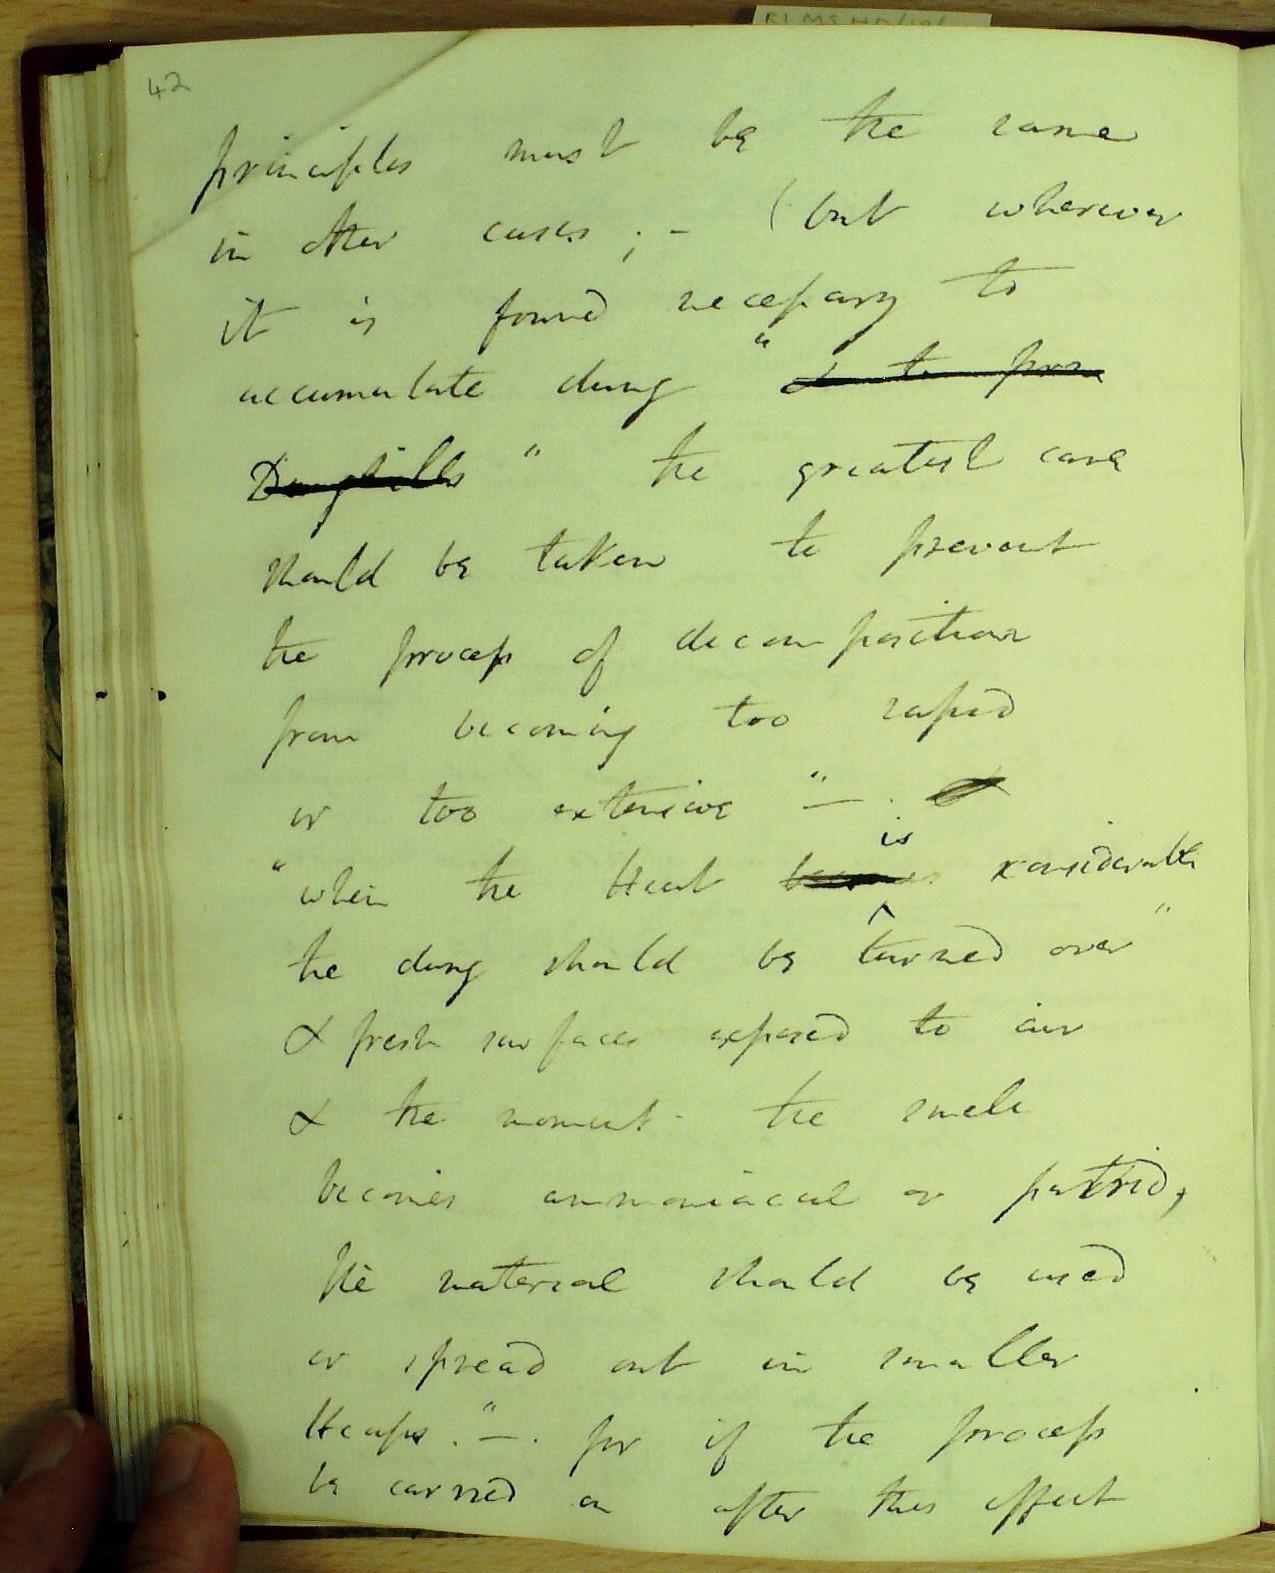 RI MS HD/
42
principles must be the same
in other cases; - (but wherever
it is found necessary to
accumulate dung " & to form
Dunghills " the greatest care
should be taken to prevent
the process of decomposition
from becoming too rapid
or too extensive " — .
is
"when the Heat becomes considerable
the dung should be turned over"
& fresh surfaces exposed to air
& the moment - the smell
becomes ammoniacal or putrid,
the material should be used
or spread out in smaller
Heaps . " — . for if the process
be carried on after this effect